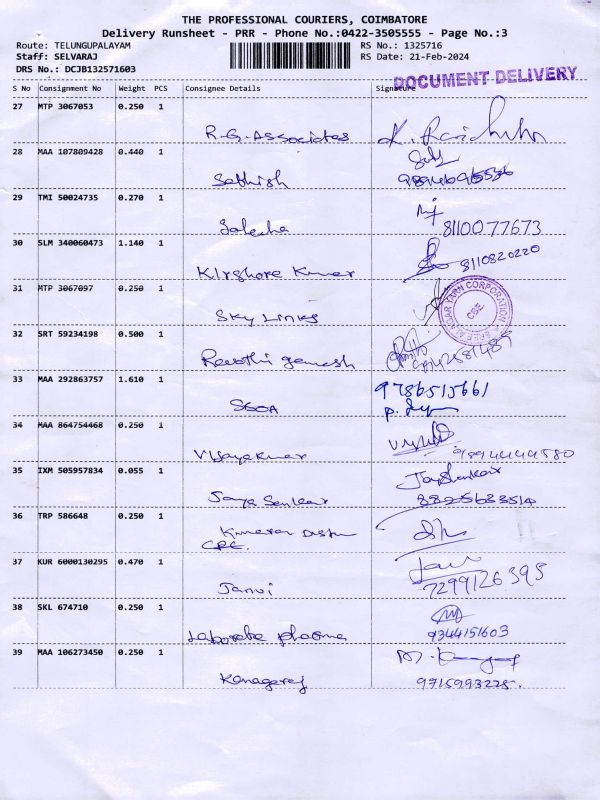 THE PROFESSIONAL COURIERS, COIMBATORE
Delivery Runsheet - PRR - Phone No.:0422-3505555 - Page No.:3
Route: TELUNGUPALAYAM RS No.: 1325716
Staff: SELVARAJ RS Date: 21-Feb-2024
DRS No.: DCJB132571603
DOCUMENT DELIVERY
S No Consignment No Weight PCS Consignee Details Signature
27 MTP 3067053 0.250 1
R.G. Associates
28 MAA 107809428 0.440 1
Sathish
29 TMI 50024735 0.270 1
8110077673
30 SLM 340060473 1.140 1
Kirshore Kumar 8110820220
31 MTP 3067097 0.250 1
Sky Links
YARN CORPORATION CBE
32 SRT 59234198 0.500 1
Revathi ganesh
33 MAA 292863757 1.610 1
9786515661
34 MAA 864754468 0.250 1
Vijayakumar
35 IXM 505957834 0.055 1
Jayashankar
Jaya Sankar 8825683514
36 TRP 586648 0.250 1
Kumaran
37 KUR 6000130295 0.470 1
Janvi 7299126395
38 SKL 674710 0.250 1
pharma 9344151603
39 MAA 106273450 0.250 1
Kanagaraj 9715993225.